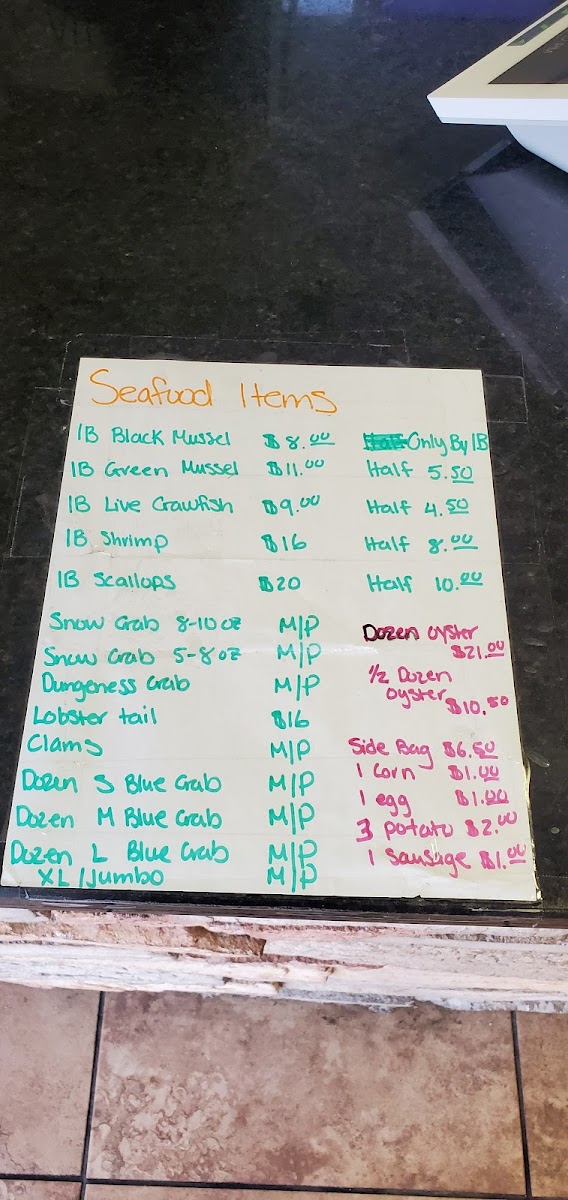 Seafood Items
1B Black Mussel $8.00 Only By 1B
1B Green Mussel $11.00 Half 5.50
1B Live Crawfish $9.00 Half 4.50
1B Shrimp $16 Half 8.00
1B Scallops $20 Half 10.00
Snow Crab 8-10 oz M/P
Snow Crab 5-8 oz M/P
Dungeness Crab M/P
Lobster tail $16
Clams M/P
Dozen S Blue Crab M/P
Dozen M Blue Crab M/P
Dozen L Blue Crab M/P
XL/Jumbo M/P
Dozen oyster
$21.00
1/2 Dozen
oyster $10.50
Side Bag $6.50
1 Corn $1.00
1 egg $1.00
3 potato $2.00
1 Sausage $1.00